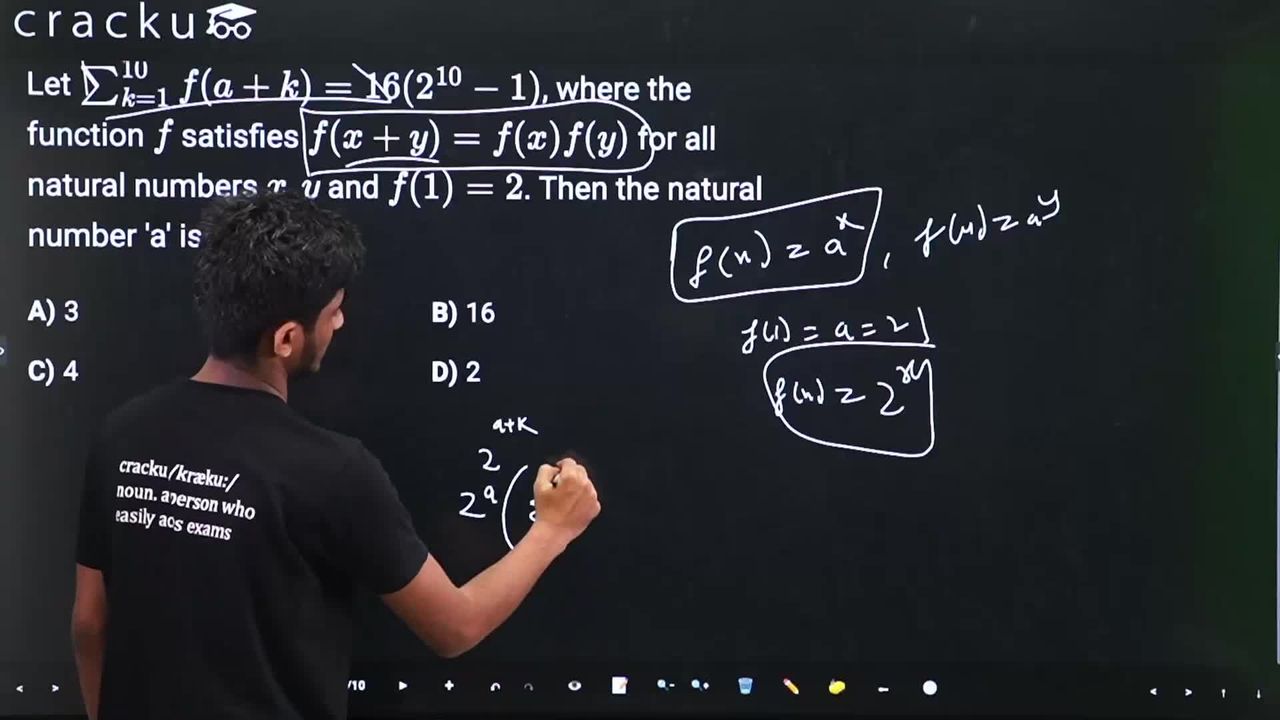 cracku
Let ∑_{k=1}^{10} f(a + k) = 16(2^{10} − 1), where the
function f satisfies f(x + y) = f(x)f(y) for all
natural numbers x, y and f(1) = 2. Then the natural
number 'a' is
A) 3
B) 16
C) 4
D) 2
f(x) = a^x, f(x) = a^y
f(1) = a = 2
2^{a+k}
2^a (
cracku/kræku:/
noun. a person who
easily aces exams
/10